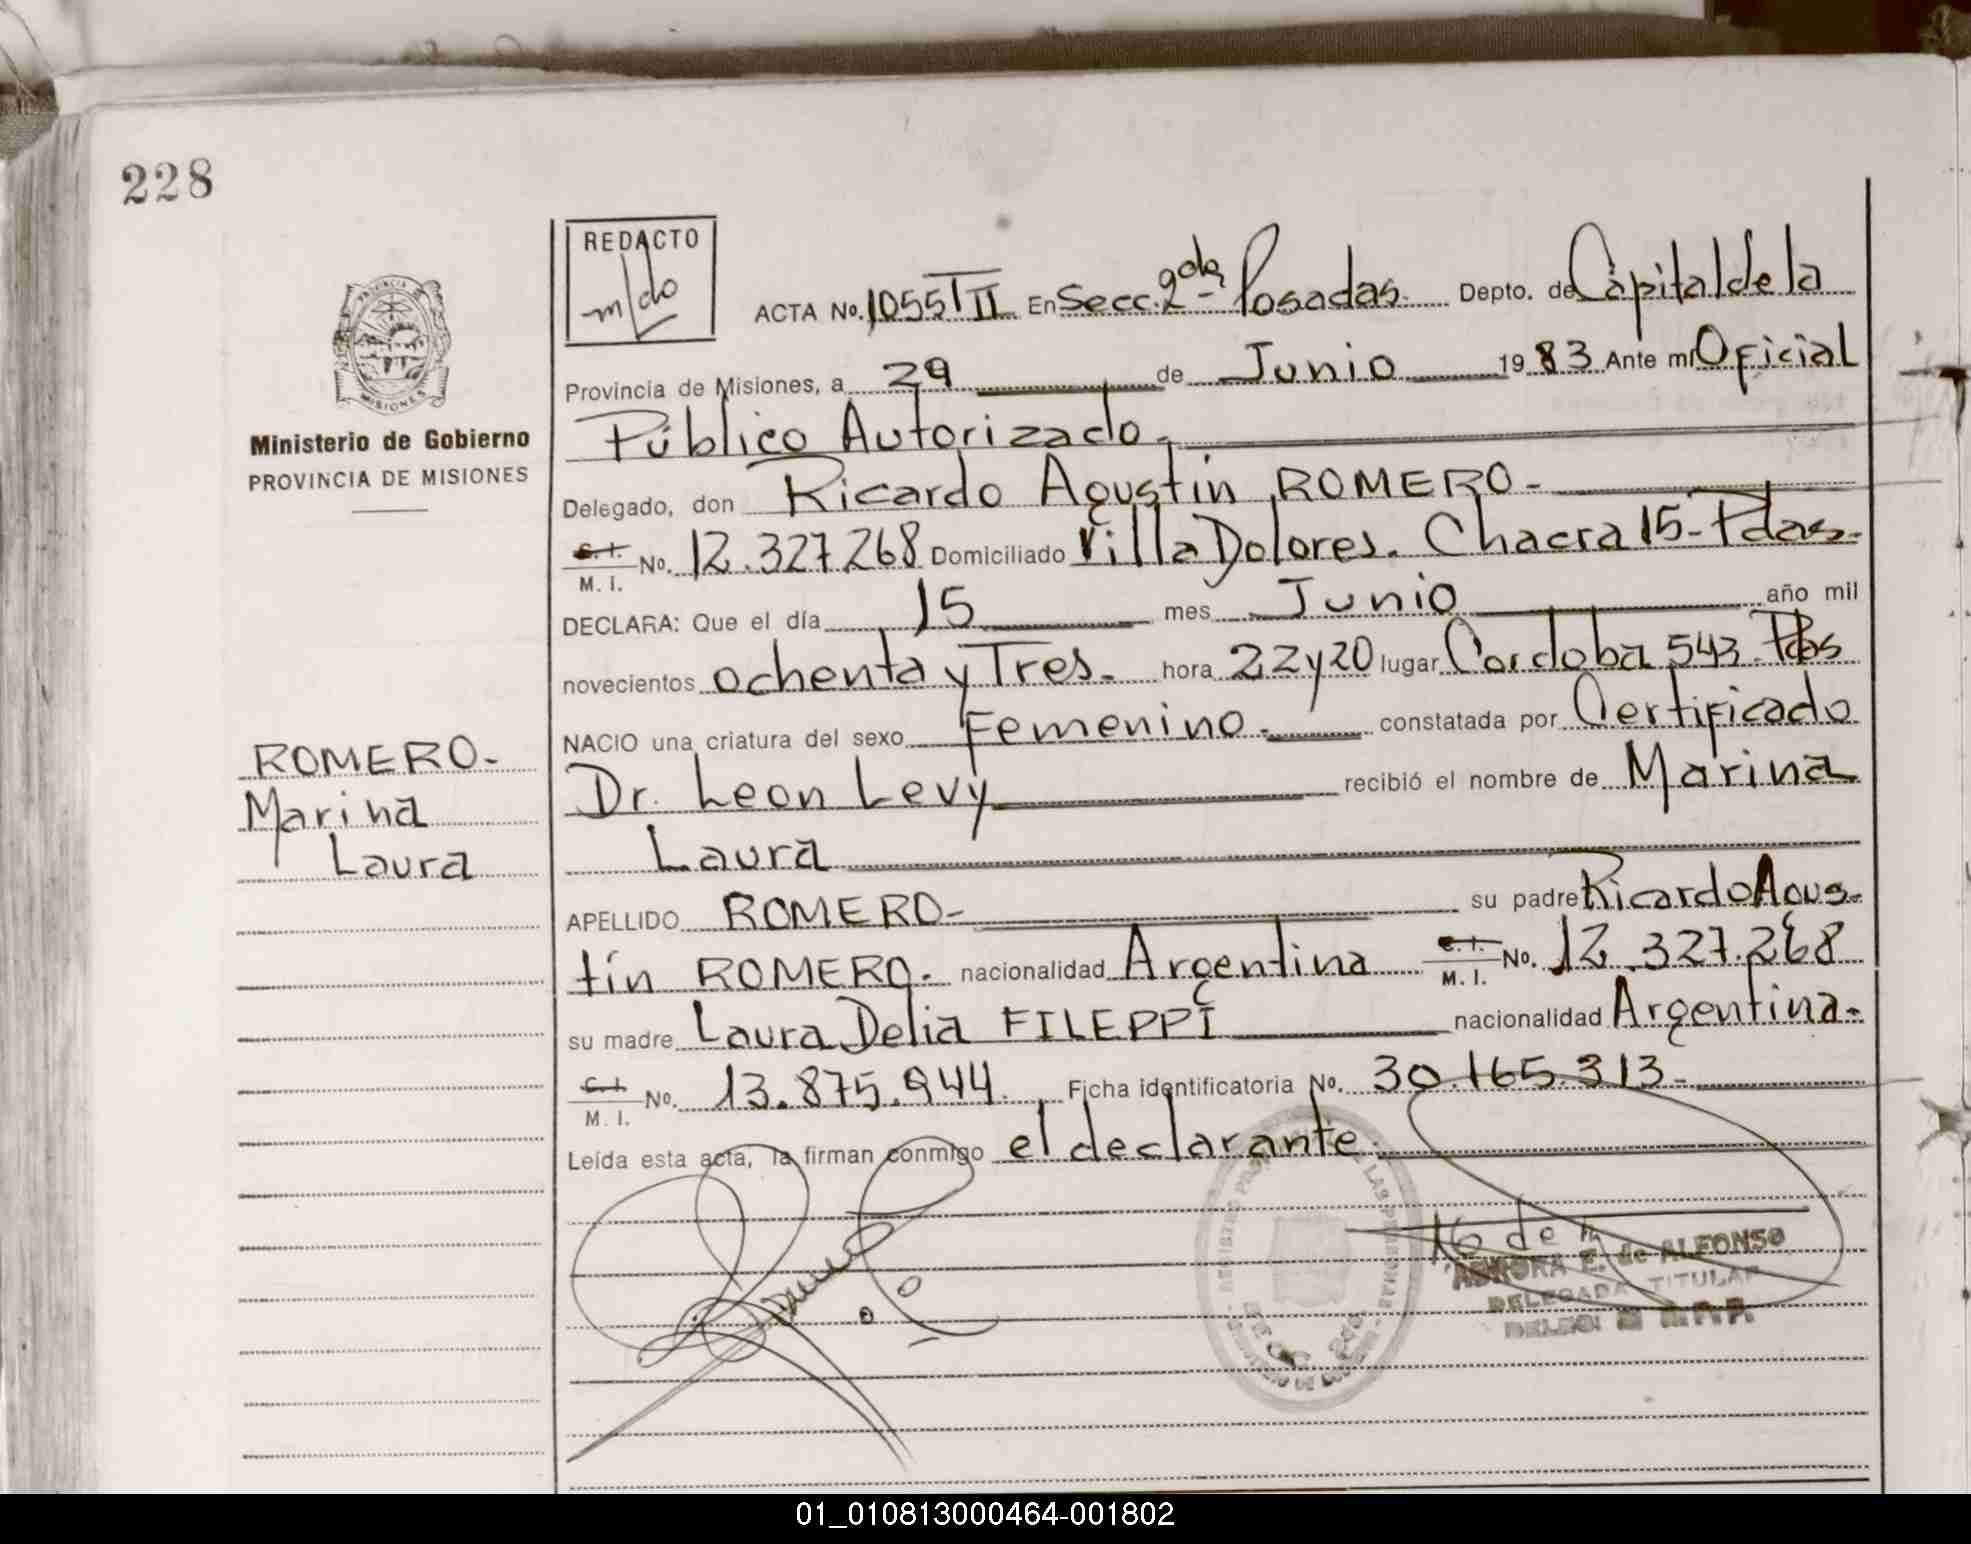 228
REDACTO
m/do
ACTA No. 1055 T II En Secc. 2da Posadas. Depto. de Capital de la
Provincia de Misiones, a 29 de Junio 1983 Ante mí Oficial
Público Autorizado.
Ministerio de Gobierno
PROVINCIA DE MISIONES
Delegado, don Ricardo Agustín ROMERO-
C.I. M.I. No. 12.327.268 Domiciliado Villa Dolores. Chacra 15-Pdas-
DECLARA: Que el día 15 mes Junio año mil
novecientos ochenta y Tres. hora 22y20 lugar Cordoba 543. Pdas
NACIO una criatura del sexo Femenino. constatada por Certificado
Dr. Leon Levy recibió el nombre de Marina
Laura
ROMERO-
Marina
Laura
APELLIDO ROMERO- su padre Ricardo Agus-
tín ROMERO. nacionalidad Argentina C.I. M.I. No. 12.327.268
su madre Laura Delia FILEPPI nacionalidad Argentina-
C.I. M.I. No. 13.875.944. Ficha identificatoria No. 30.165.313-
Leída esta acta, la firman conmigo el declarante.
16 de
E. de ALFONSO
DELEGADA TITULAR
01_010813000464-001802